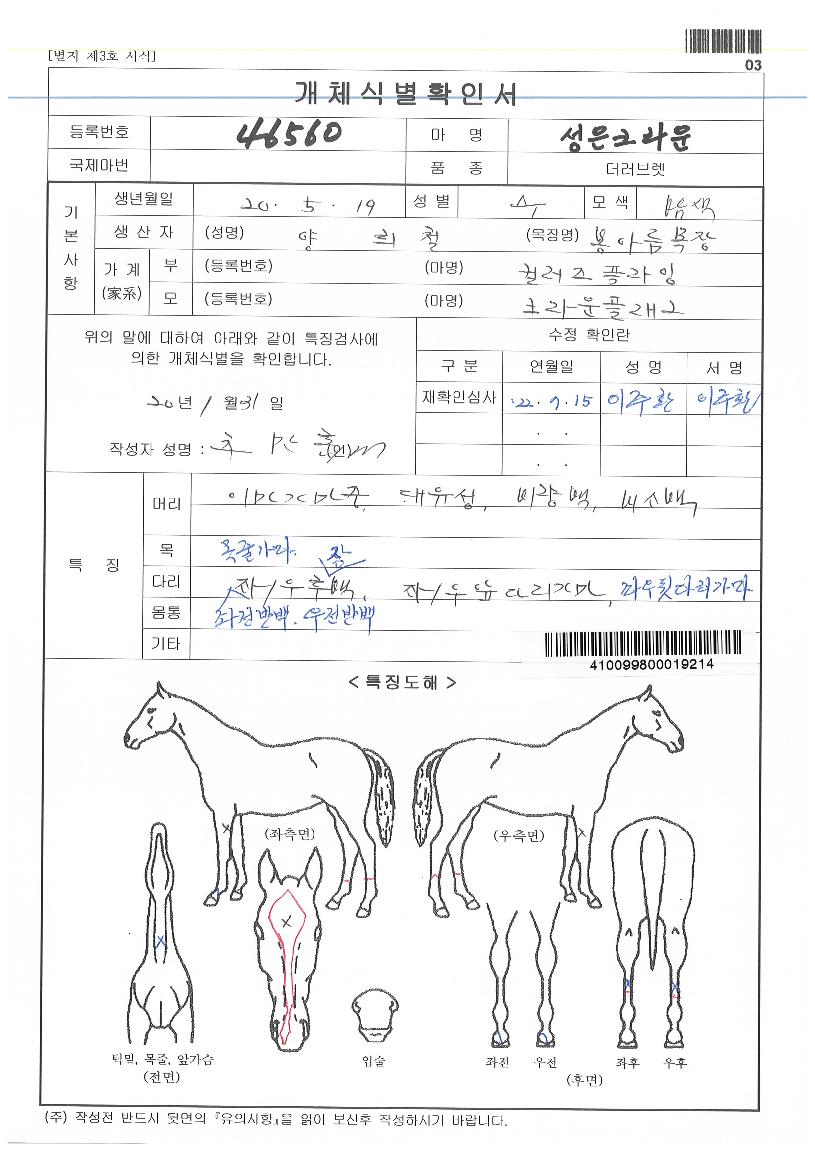 [별지 제3호 서식]
03
개체식별확인서
등록번호 46560 마 명 성은크라운
국제마번 품 종 더러브렛
기본사항
생년월일 20. 5. 19 성별 수 모색 밤색
생 산 자 (성명) 양 희 철 (목장명) 봉아름목장
가 계 (家系) 부 (등록번호) (마명) 컬러즈플라잉
모 (등록번호) (마명) 크라운플래그
위의 말에 대하여 아래와 같이 특징검사에
의한 개체식별을 확인합니다.
20년 1월 31일
작성자 성명 :
수정 확인란
구 분 연월일 성 명 서 명
재확인심사 '22. 9. 15 이주환 이주환
. .
. .
특 징
머리 대유성, 비량백, 비소백
목 목줄가마
장
다리 좌/우후백, 좌/우앞다리가마, 좌우뒷다리가마
몸통 좌전반백. 우전반백
기타
410099800019214
< 특징도해 >
(좌측면) (우측면)
턱밑, 목줄, 앞가슴
(전면)
입술
좌전 우전 좌후 우후
(후면)
(주) 작성전 반드시 뒷면의 『유의사항』을 읽어 보신후 작성하시기 바랍니다.